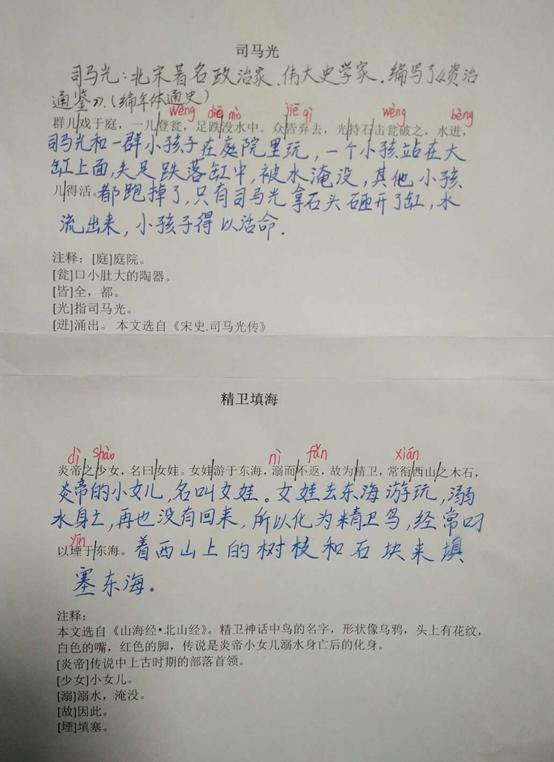 司马光
司马光:北宋著名政治家、伟大史学家。编写了《资治
通鉴》。(编年体通史)
wèng diē mò jiē qì wèng bèng
群儿戏于庭,一儿登瓮,足跌没水中。众皆弃去,光持石击瓮破之,水迸,
司马光和一群小孩子在庭院里玩,一个小孩站在大
缸上面,失足跌落缸中,被水淹没,其他小孩
儿得活。都跑掉了,只有司马光拿石头砸开了缸,水
流出来,小孩子得以活命.
注释:[庭]庭院。
[瓮]口小肚大的陶器。
[皆]全,都。
[光]指司马光。
[迸]涌出。 本文选自《宋史.司马光传》
精卫填海
dì shào nì fǎn xián
炎帝之少女,名曰女娃。女娃游于东海,溺而不返,故为精卫,常衔西山之木石,
炎帝的小女儿,名叫女娃。女娃去东海游玩,溺
水身亡,再也没有回来,所以化为精卫鸟,经常叼
yīn
以堙于东海。着西山上的树枝和石块来填
塞东海。
注释:
本文选自《山海经•北山经》。精卫神话中鸟的名字,形状像乌鸦,头上有花纹,
白色的嘴,红色的脚,传说是炎帝小女儿溺水身亡后的化身。
[炎帝]传说中上古时期的部落首领。
[少女]小女儿。
[溺]溺水,淹没。
[故]因此。
[堙]填塞。